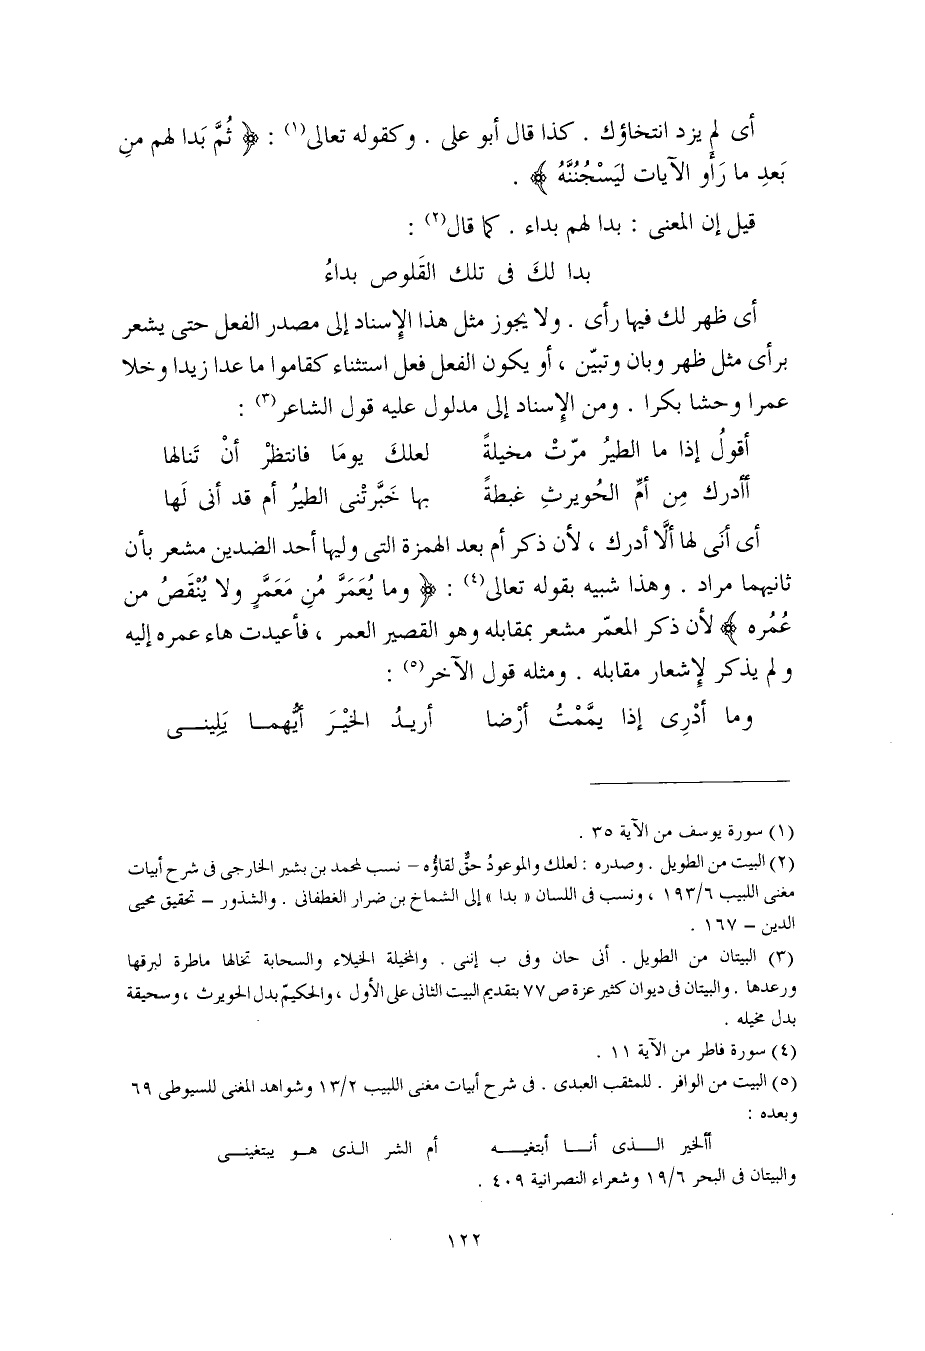 أى لم يزد انتخاؤك . كذا قال أبو على . وكقوله تعالى(١) : ﴿ ثُمَّ بَدا لهم منِ
بَعدِ ما رَأَو الآيات ليَسْجُنُنَّهُ ﴾ .
قيل إن المعنى : بدا لهم بداء . كما قال(٢) :
بدا لكَ فى تلك القَلوص بداءُ
أى ظهر لك فيها رأى . ولا يجوز مثل هذا الإسناد إلى مصدر الفعل حتى يشعر
برأى مثل ظهر وبان وتبيّن ، أو يكون الفعل فعل استثناء كقاموا ما عدا زيدا وخلا
عمرا وحشا بكرا . ومن الإسناد إلى مدلول عليه قول الشاعر(٣) :
أقولُ إذا ما الطيرُ مرّتْ مخيلةً لعلكَ يومَا فانتظرْ أنْ تَنالها
أأدرك مِن أمِّ الحُويرثِ غبطةً بها خَبَّرتْنى الطيرُ أم قد أنى لَها
أى أنَى لها ألَّا أدرك ، لأن ذكر أم بعد الهمزة التى وليها أحد الضدين مشعر بأن
ثانيهما مراد . وهذا شبيه بقوله تعالى(٤) : ﴿ وما يُعَمَرَّ مُنِ مَعَمَّرٍ ولا يُنْقَصُ من
عُمُره ﴾ لأن ذكر المعمّر مشعر بمقابله وهو القصير العمر ، فأعيدت هاء عمره إليه
ولم يذكر لإشعار مقابله . ومثله قول الآخر(٥) :
وما أدْرِى إذا يمَّمْتُ أرْضا أريدُ الخيْرَ أيُّهما يَلِينى
(١) سورة يوسف من الآية ٣٥ .
(٢) البيت من الطويل . وصدره : لعلك والموعودُ حقٌّ لقاؤه – نسب لمحمد بن بشير الخارجى فى شرح أبيات
مغنى اللبيب ١٩٣/٦ ، ونسب فى اللسان « بدا » إلى الشماخ بن ضرار الغطفانى . والشذور – تحقيق محيى
الدين – ١٦٧ .
(٣) البيتان من الطويل . أنى حان وفى ب إننى . والمخيلة الخيلاء والسحابة تخالها ماطرة لبرقها
ورعدها . والبيتان فى ديوان كثير عزة ص ٧٧ بتقديم البيت الثانى على الأول ، والحكيمّ بدل الحويرث ، وسحيقة
بدل مخيله .
(٤) سورة فاطر من الآية ١١ .
(٥) البيت من الوافر . للمثقب العبدى . فى شرح أبيات مغنى اللبيب ١٣/٢ وشواهد المغنى للسيوطى ٦٩
وبعده :
أألخير الذى أنا أبتغيه أم الشر الذى هو يبتغينى
والبيتان فى البحر ١٩/٦ وشعراء النصرانية ٤٠٩ .
١٢٢